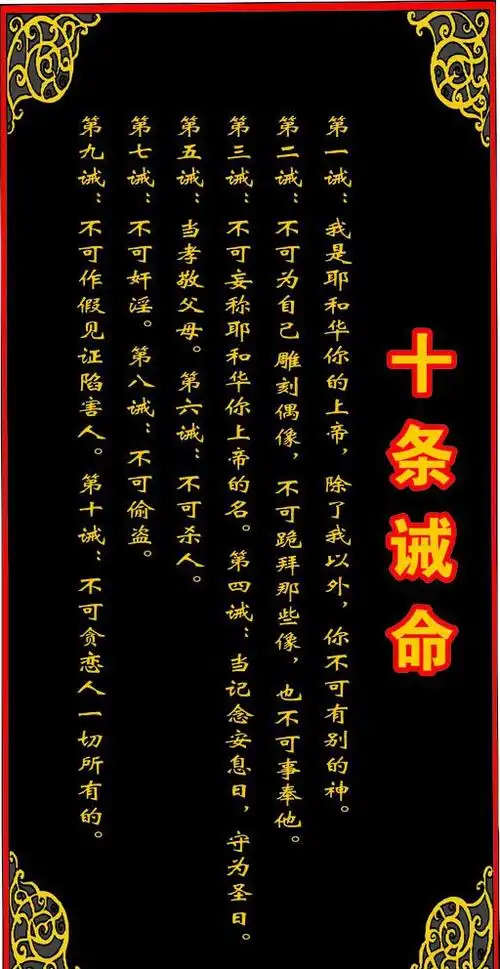 十条诫命
第一诫：我是耶和华你的上帝，除了我以外，你不可有别的神。
第二诫：不可为自己雕刻偶像，不可跪拜那些像，也不可事奉他。
第三诫：不可妄称耶和华你上帝的名。第四诫：当记念安息日，守为圣日。
第五诫：当孝敬父母。第六诫：不可杀人。
第七诫：不可奸淫。第八诫：不可偷盗。
第九诫：不可作假见证陷害人。第十诫：不可贪恋人一切所有的。